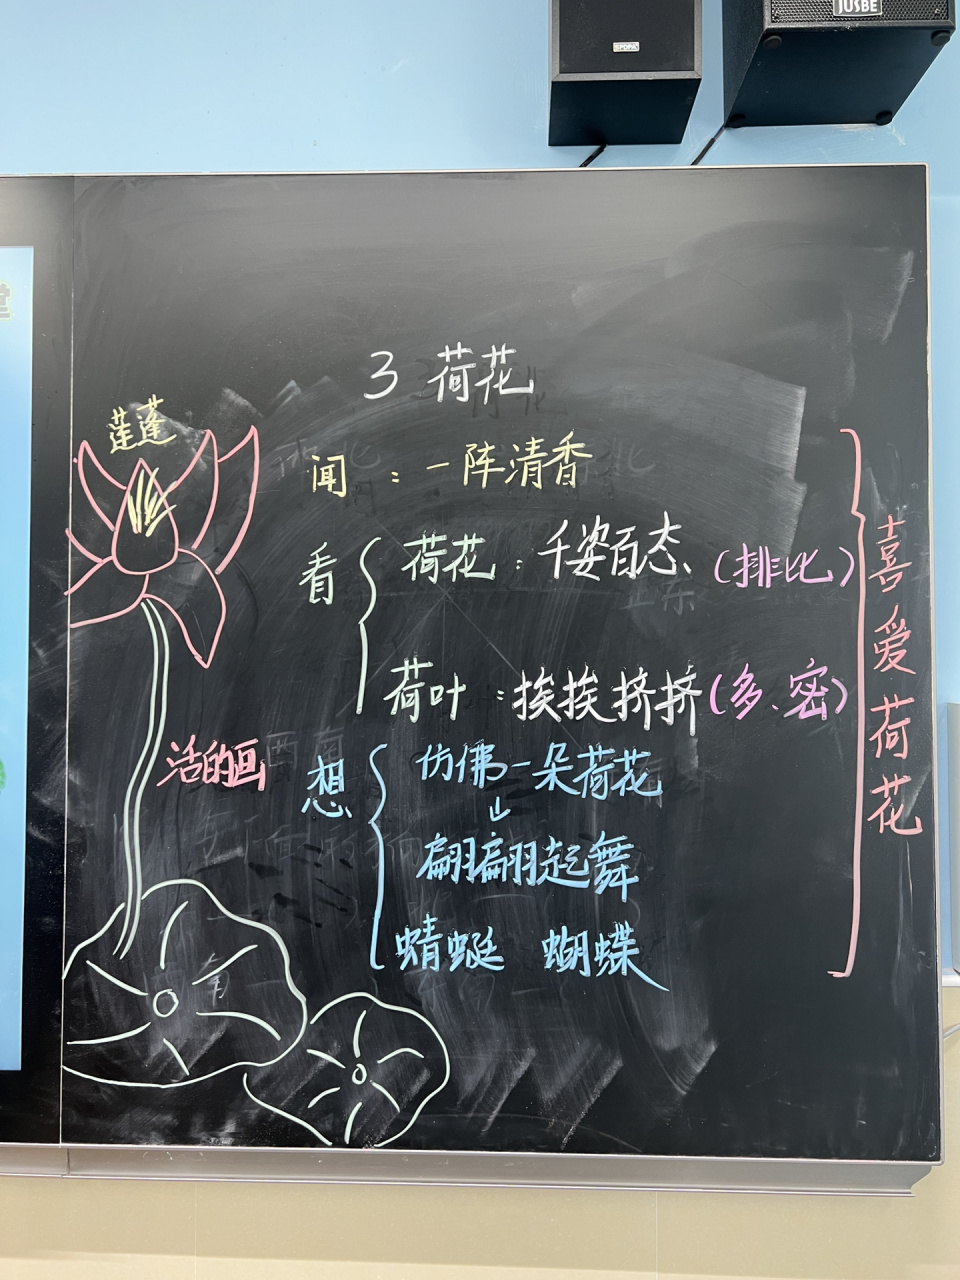 JUSBE
堂
3 荷花
莲蓬
闻：一阵清香
看
荷花：千姿百态（排比）
荷叶：挨挨挤挤（多、密）
活的画
想
仿佛一朵荷花
↓
翩翩起舞
蜻蜓 蝴蝶
喜爱荷花